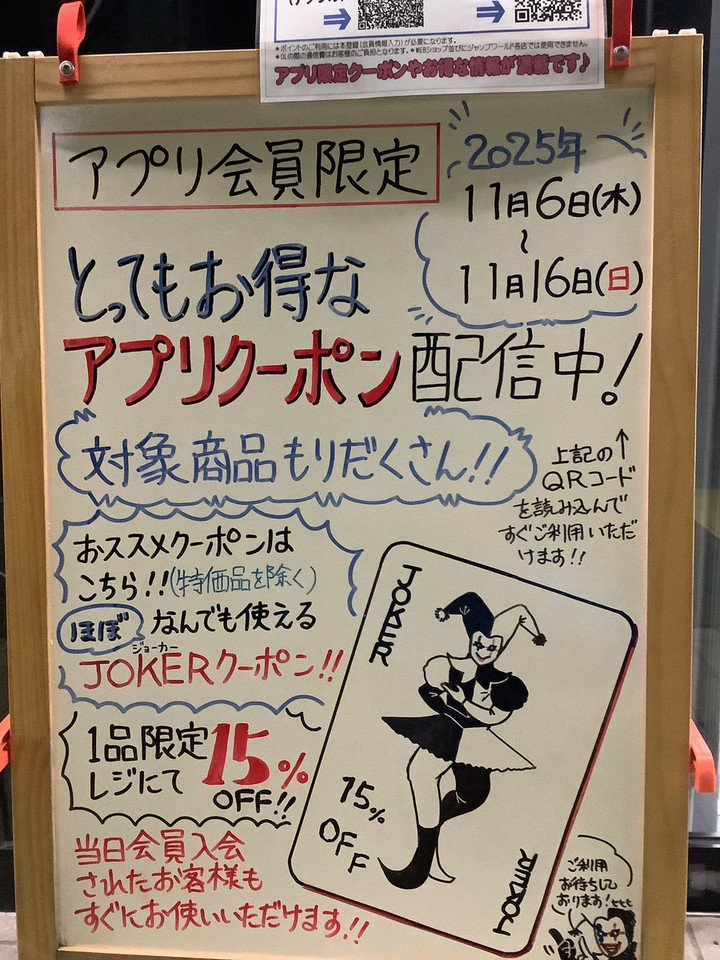 ＊ポイントのご利用には本登録(会員情報入力)が必要になります。
＊DLの際の通信費はお客様のご負担となります。＊WEBショップ並びにジャンプワールド各店では使用できません。
アプリ限定クーポンやお得な情報が満載です♪
アプリ会員限定
2025年
11月6日(木)
～
11月16日(日)
とってもお得な
アプリクーポン配信中!
対象商品もりだくさん!!
上記の↑
QRコード
を読み込んで
すぐご利用いただ
けます!!
おススメクーポンは
こちら!!(特価品を除く)
ほぼ なんでも使える
ジョーカー
JOKERクーポン!!
1品限定
レジにて
15%
OFF!!
JOKER
15%
OFF
JOKER
当日会員入会
されたお客様も
すぐにお使いいただけます!!
ご利用
お待ちして
おります!